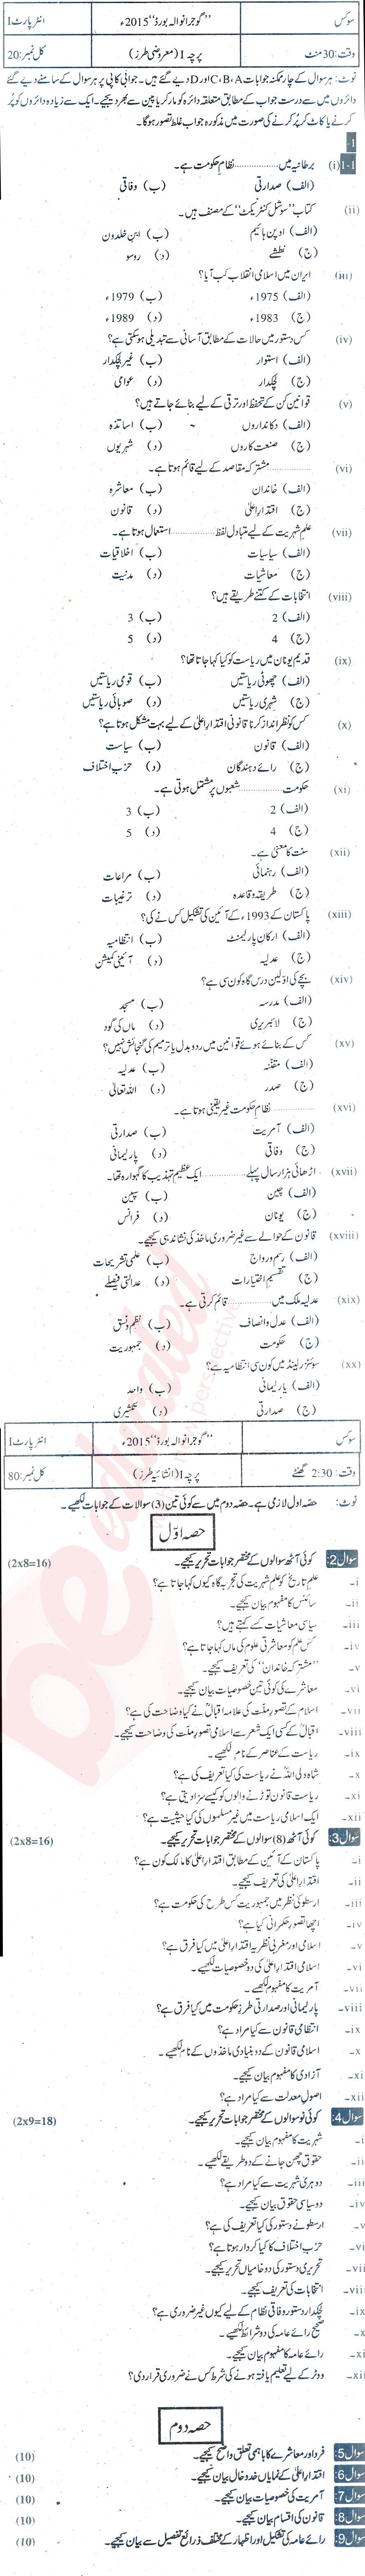 سوکس "گوجرانوالہ بورڈ" 2015ء انٹر پارٹ I
وقت: 30 منٹ پرچہ I (معروضی طرز) کل نمبر: 20
نوٹ: ہر سوال کے چار ممکنہ جوابات C، B، A اور D دیے گئے ہیں۔ جوابی کاپی پر ہر سوال کے سامنے دیے گئے
دائروں میں سے درست جواب کے مطابق متعلقہ دائرہ کو مارکر یا پین سے بھر دیجیے۔ ایک سے زیادہ دائروں کو پُر
کرنے یا کاٹ کر پُر کرنے کی صورت میں مذکورہ جواب غلط تصور ہوگا۔
-1
1-1 (i) برطانیہ میں ............... نظام حکومت ہے۔
(الف) صدارتی (ب) وفاقی
(ii) کتاب "سوشل کنٹریکٹ" کے مصنف ہیں۔
(الف) اوپن ہائیم (ب) ابن خلدون
(ج) نطشے (د) روسو
(iii) ایران میں اسلامی انقلاب کب آیا؟
(الف) 1975ء (ب) 1979ء
(ج) 1983ء (د) 1989ء
(iv) کس دستور میں حالات کے مطابق آسانی سے تبدیلی ہوسکتی ہے؟
(الف) استوار (ب) غیر لچکدار
(ج) لچکدار (د) عوامی
(v) قوانین کن کے تحفظ اور ترقی کے لیے بنائے جاتے ہیں؟
(الف) دکانداروں (ب) اساتذہ
(ج) صنعت کاروں (د) شہریوں
(vi) ............... مشترکہ مقاصد کے لیے قائم ہوتا ہے۔
(الف) خاندان (ب) معاشرہ
(ج) اقتدار اعلیٰ (د) قانون
(vii) علم شہریت کے لیے متبادل لفظ ............... استعمال ہوتا ہے۔
(الف) سیاسیات (ب) اخلاقیات
(ج) معاشیات (د) مدنیت
(viii) انتخابات کے کتنے طریقے ہیں؟
(الف) 2 (ب) 3
(ج) 4 (د) 5
(ix) قدیم یونان میں ریاست کو کیا کہا جاتا تھا؟
(الف) چھوٹی ریاستیں (ب) قومی ریاستیں
(ج) شہری ریاستیں (د) صوبائی ریاستیں
(x) کس کو نظر انداز کرنا قانونی اقتدار اعلیٰ کے لیے بہت مشکل ہوتا ہے؟
(الف) قانون (ب) سیاست
(ج) رائے دہندگان (د) حزب اختلاف
(xi) حکومت ............... شعبوں پر مشتمل ہوتی ہے۔
(الف) 2 (ب) 3
(ج) 4 (د) 5
(xii) سنت کا معنی ہے۔
(الف) رہنمائی (ب) مراعات
(ج) طریقہ و قاعدہ (د) ترغیبات
(xiii) پاکستان کے 1993ء کے آئین کی تشکیل کس نے کی؟
(الف) ارکان پارلیمنٹ (ب) انتظامیہ
(ج) عدلیہ (د) آئینی کمیشن
(xiv) بچے کی اوّلین درس گاہ کون سی ہے؟
(الف) مدرسہ (ب) مسجد
(ج) لائبریری (د) ماں کی گود
(xv) کس کے بنائے ہوئے قوانین میں ردو بدل یا ترمیم کی گنجائش نہیں؟
(الف) مقننہ (ب) عدلیہ
(ج) صدر (د) اللہ تعالیٰ
(xvi) ............... نظام حکومت غیر یقینی ہوتا ہے۔
(الف) آمریت (ب) صدارتی
(ج) وفاقی (د) پارلیمانی
(xvii) اڑھائی ہزار سال پہلے ............... ایک عظیم تہذیب کا گہوارہ تھا۔
(الف) چین (ب) سپین
(ج) یونان (د) فرانس
(xviii) قانون کے حوالے سے غیر ضروری ماخذ کی نشاندہی کیجیے۔
(الف) رسم و رواج (ب) علمی تشریحات
(ج) تقسیم اختیارات (د) عدالتی فیصلے
(xix) عدلیہ ملک میں ............... قائم کرتی ہے۔
(الف) عدل و انصاف (ب) نظم و نسق
(ج) حکومت (د) جمہوریت
(xx) سوئٹزر لینڈ میں کون سی انتظامیہ ہے؟
(الف) پارلیمانی (ب) واحد
(ج) صدارتی (د) تکثیری
سوکس "گوجرانوالہ بورڈ" 2015ء انٹر پارٹ I
وقت: 2:30 گھنٹے پرچہ I (انشائیہ طرز) کل نمبر: 80
نوٹ: حصہ اول لازمی ہے۔ حصہ دوم میں سے کوئی تین (3) سوالات کے جوابات لکھیے۔
حصہ اوّل
سوال 2: کوئی آٹھ سوالوں کے مختصر جوابات تحریر کیجیے۔ (2x8=16)
i- علم تاریخ کو علم شہریت کی تجربہ گاہ کیوں کہا جاتا ہے؟
ii- سائنس کا مفہوم بیان کیجیے۔
iii- سیاسی معاشیات کسے کہتے ہیں؟
iv- کس علم کو معاشرتی علوم کی ماں کہا جاتا ہے؟
v- "مشترکہ خاندان" کی تعریف کیجیے۔
vi- معاشرے کی کوئی تین خصوصیات بیان کیجیے۔
vii- اسلام کے تصور ملّت کی علامہ اقبالؒ نے کیا وضاحت کی ہے؟
viii- اقبالؒ کے کسی ایک شعر سے اسلامی تصور ملّت کی وضاحت کیجیے۔
ix- ریاست کے عناصر کے نام لکھیے۔
x- شاہ ولی اللہؒ نے ریاست کی کیا تعریف کی ہے؟
xi- ریاست قانون توڑنے والوں کو کیسے سزا دیتی ہے؟
xii- ایک اسلامی ریاست میں غیر مسلموں کی کیا حیثیت ہے؟
سوال 3: کوئی آٹھ (8) سوالوں کے مختصر جوابات تحریر کیجیے۔ (2x8=16)
i- پاکستان کے آئین کے مطابق اقتدار اعلیٰ کا مالک کون ہے؟
ii- اقتدار اعلیٰ کی تعریف کیجیے۔
iii- ارسطو کی نظر میں جمہوریت کس طرح کی حکومت ہے؟
iv- اچھا تصور حکمرانی کیا ہے؟
v- اسلامی اور مغربی نظریہ اقتدار اعلیٰ میں کیا فرق ہے؟
vi- اسلامی اقتدار اعلیٰ کی دو خصوصیات لکھیے۔
vii- آمریت کا مفہوم لکھیے۔
viii- پارلیمانی اور صدارتی طرز حکومت میں کیا فرق ہے؟
ix- انتظامی قانون سے کیا مراد ہے؟
x- اسلامی قانون کے دو بنیادی ماخذوں کے نام لکھیے۔
xi- آزادی کا مفہوم بیان کیجیے۔
xii- اصول معدلت سے کیا مراد ہے؟
سوال 4: کوئی نو سوالوں کے مختصر جوابات تحریر کیجیے۔ (2x9=18)
i- شہریت کا مفہوم بیان کیجیے۔
ii- حقوق چھن جانے کے دو طریقے لکھیے۔
iii- دوہری شہریت سے کیا مراد ہے؟
iv- دو سیاسی حقوق بیان کیجیے۔
v- ارسطو نے دستور کی کیا تعریف کی ہے؟
vi- حزب اختلاف کا کیا کردار ہوتا ہے؟
vii- تحریری دستور کی دو خامیاں تحریر کیجیے۔
viii- انتخابات کی تعریف کیجیے۔
ix- لچکدار دستور وفاقی نظام کے لیے کیوں غیر ضروری ہے؟
x- صحیح رائے عامہ کی دو شرائط لکھیے۔
xi- رائے عامہ کا مفہوم بیان کیجیے۔
xii- ووٹر کے لیے تعلیم یافتہ ہونے کی شرط کس نے ضروری قرار دی؟
حصہ دوم
سوال 5: فرد اور معاشرے کا باہمی تعلق واضح کیجیے۔ (10)
سوال 6: اقتدار اعلیٰ کے نمایاں خدوخال بیان کیجیے۔ (10)
سوال 7: آمریت کی خصوصیات بیان کیجیے۔ (10)
سوال 8: قانون کی اقسام بیان کیجیے۔ (10)
سوال 9: رائے عامہ کی تشکیل اور اظہار کے مختلف ذرائع تفصیل سے بیان کیجیے۔ (10)